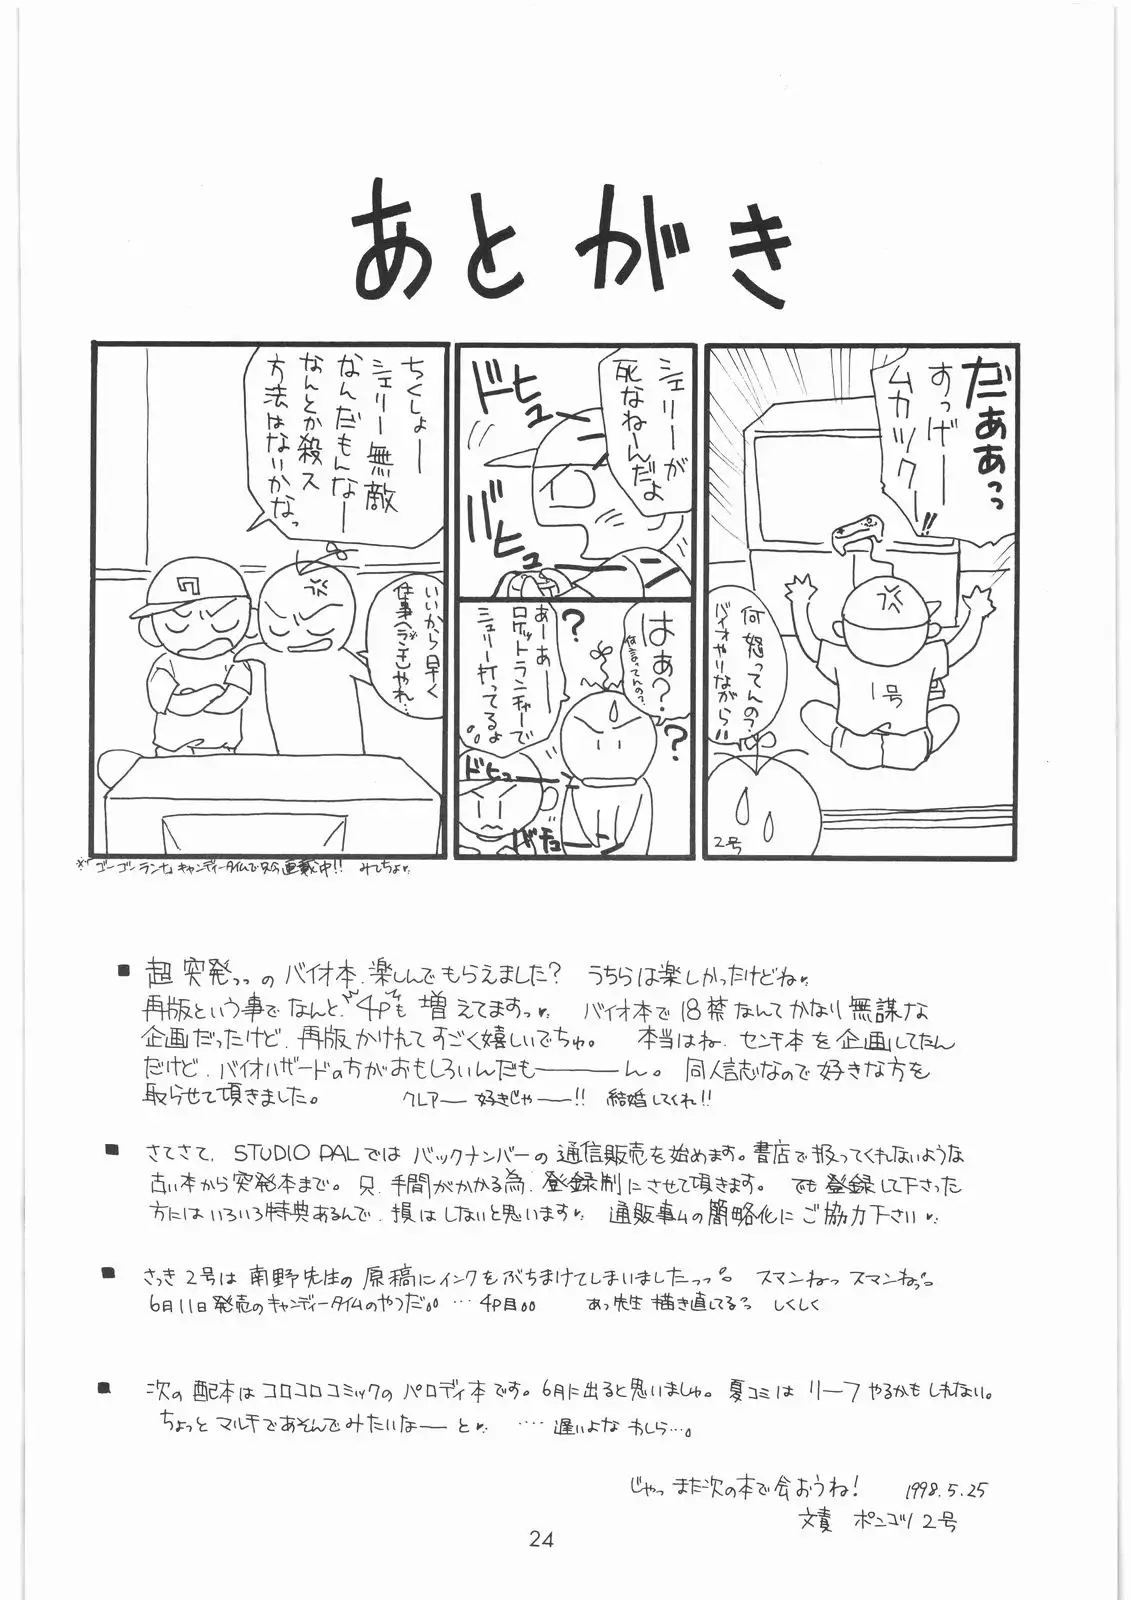 あとがき
だああっっ
すっげー
ムカツクー!!
1号
何怒ってんの?
バイオやりながら
2号
シェリーが
死なねーんだよ
ドヒューン
バヒューーン
はあ?
何言ってんの?
?
?
あーあー
ロケットランチャーで
シェリー打ってるよ
ドヒューーン
バヒューーン
ちくしょー
シェリー無敵
なんだもんなー
なんとか殺ス
方法はないかな。
いいから早く
仕事(ランナ)やれ…
※「ゴーゴーランナ」キャンディータイムで只今連載中!! みてちょ
■ 超突発っっのバイオ本、楽しんでもらえました? うちらは楽しかったけどね
再版という事でなんと、4Pも増えてますっ バイオ本で18禁なんてかなり無謀な
企画だったけど、再版かけれてすごく嬉しいでちゅ。 本当はね、センチ本を企画してたん
だけど、バイオハザードの方がおもしろいんだもーーーん。同人誌なので好きな方を
取らせて頂きました。 クレアー 好きじゃー!! 結婚してくれ!!
■ さてさて、STUDIO PALではバックナンバーの通信販売を始めます。書店で扱ってくれないような
古い本から突発本まで。只、手間がかかる為、登録制にさせて頂きます。でも登録して下さった
方にはいろいろ特典あるんで、損はしないと思います 通販事ムの簡略化にご協力下さい
■ さっき2号は南野先生の原稿にインクをぶちまけてしまいましたっっ。 スマンねっスマンねっ。
6月11日発売のキャンディータイムのやつだ。 …4P目。 あっ先生描き直してるっ しくしく
■ 次の配本はコロコロコミックのパロディ本です。6月に出ると思いましゅ。夏コミはリーフやるかもしれない。
ちょっとマルチであそんでみたいなーと ‥‥遅いよなわしら…。
じゃっまた次の本で会おうね! 1998.5.25
文責 ポンコツ2号
24